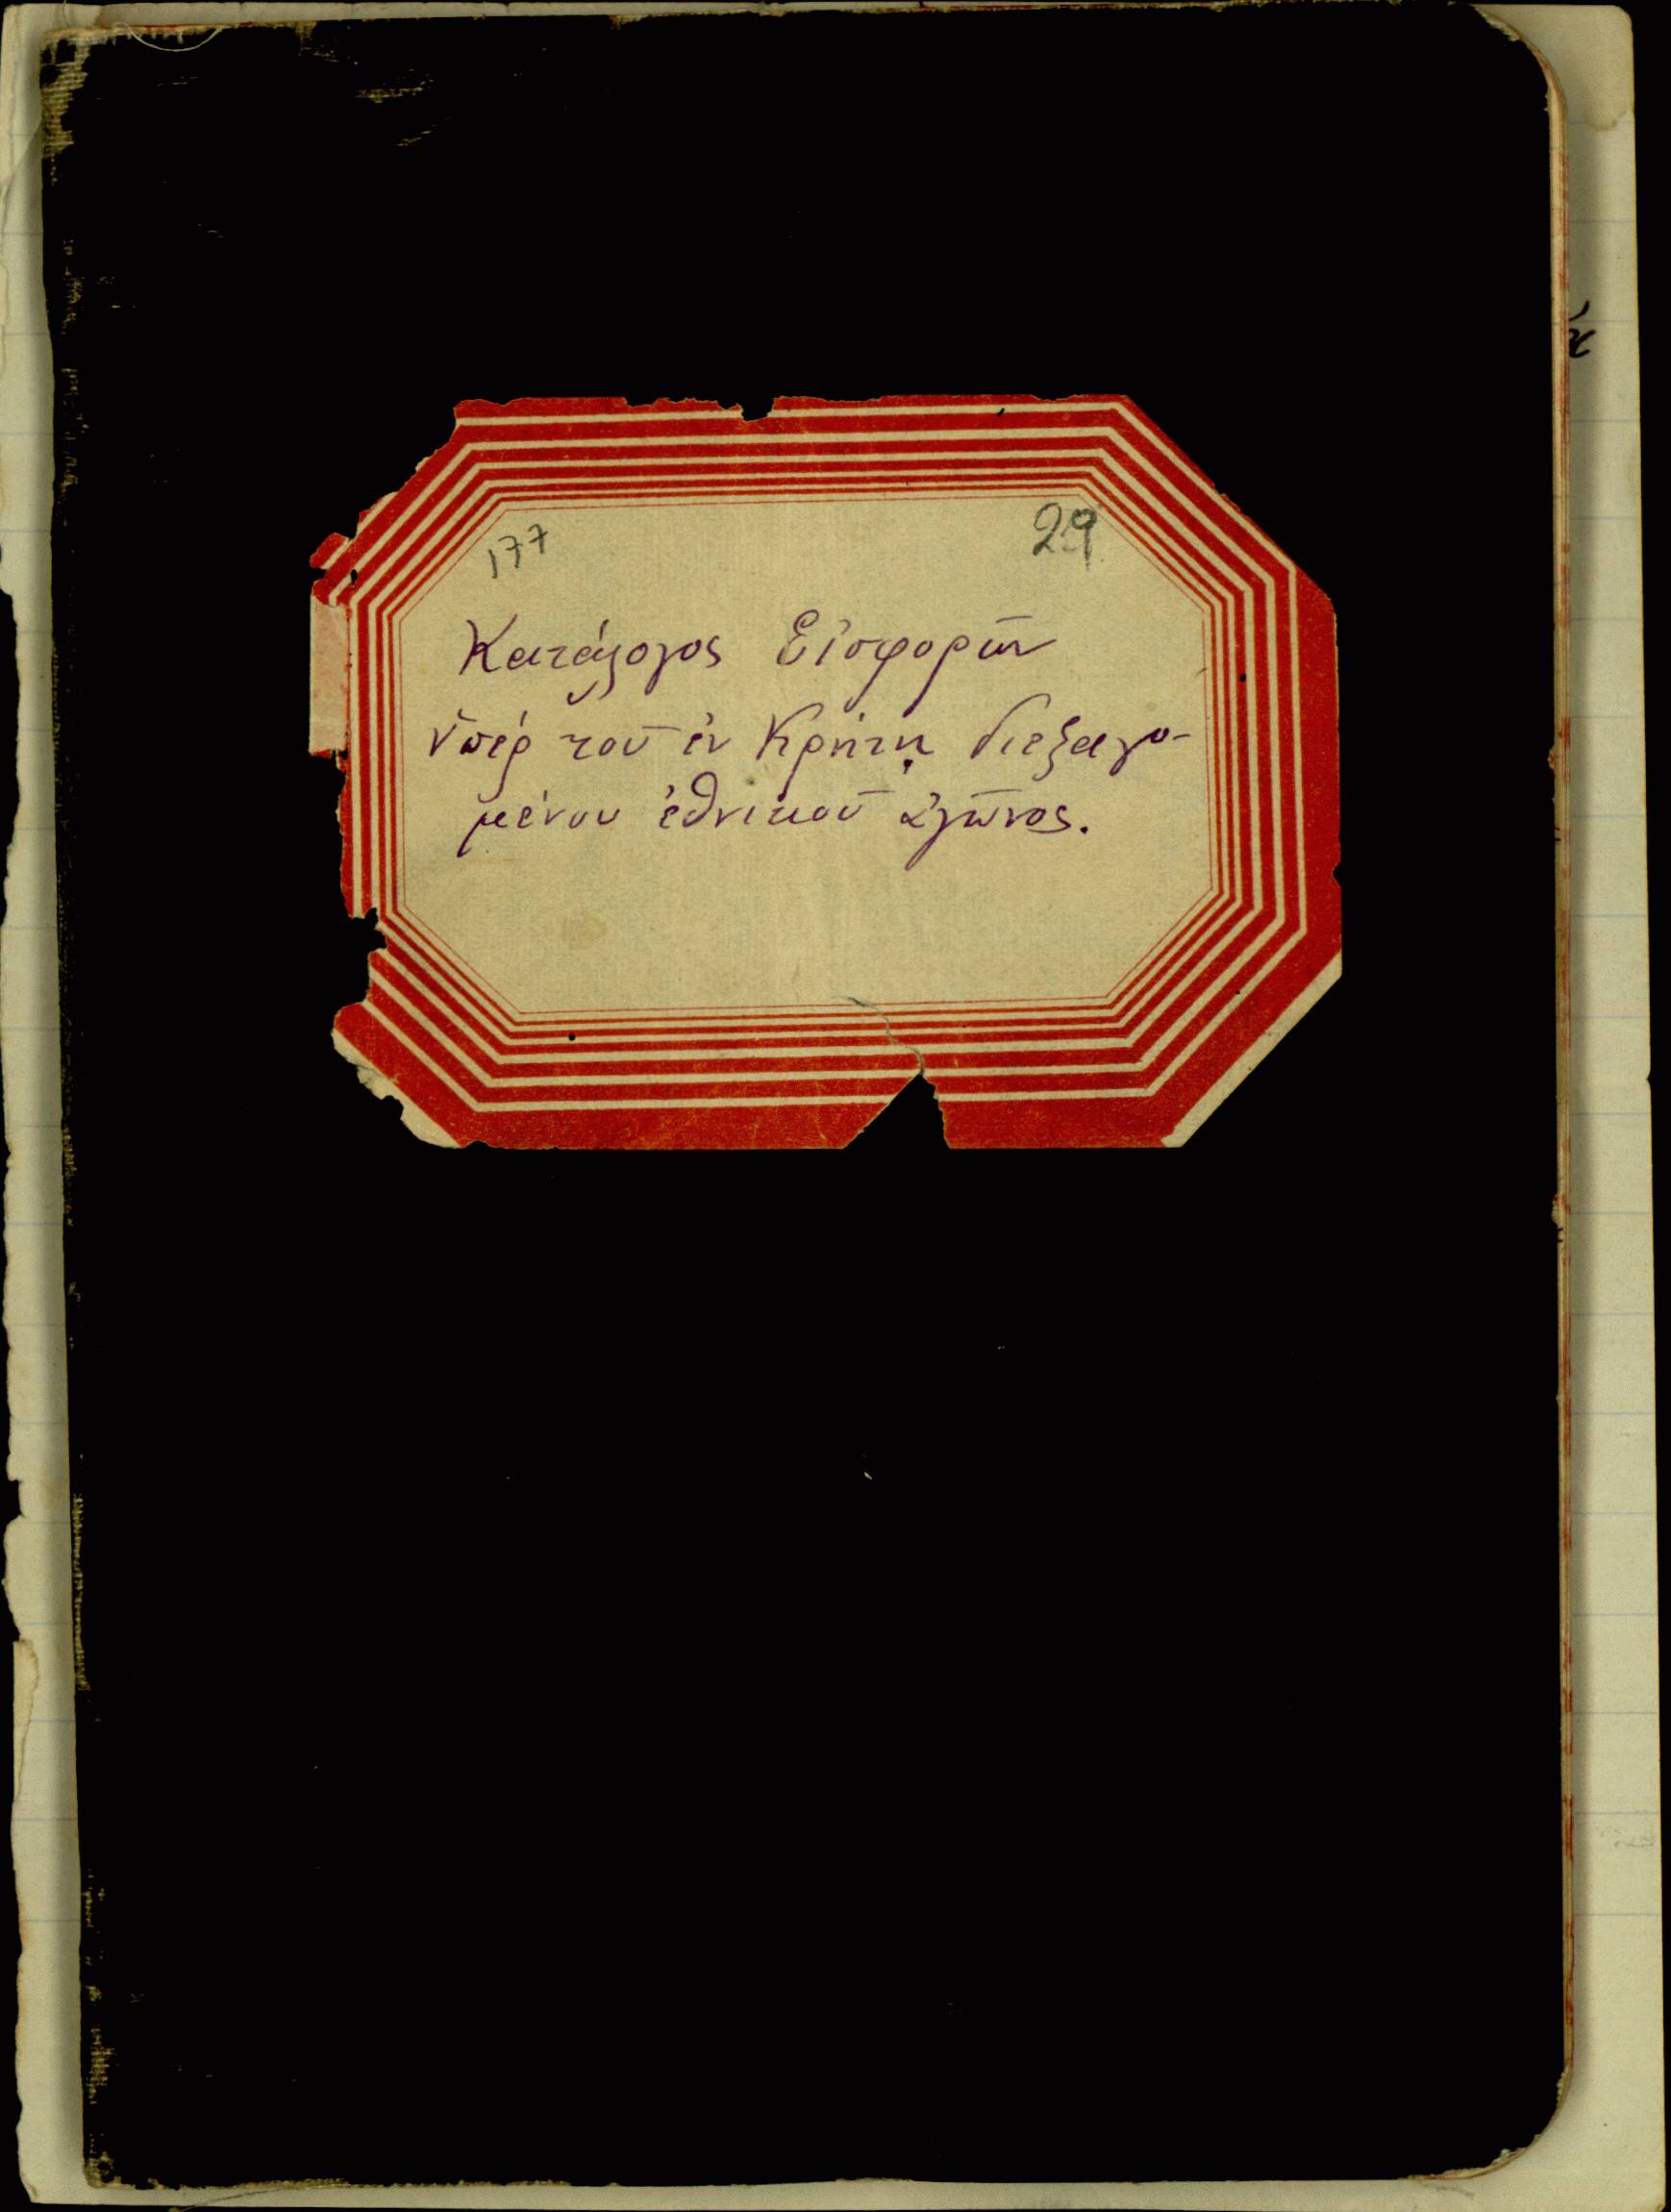 177 29
Κατάλογος Εἰσφορῶν
ὑπέρ τοῦ ἐν Κρήτῃ διεξαγο-
μένου ἐθνικοῦ ἀγῶνος.